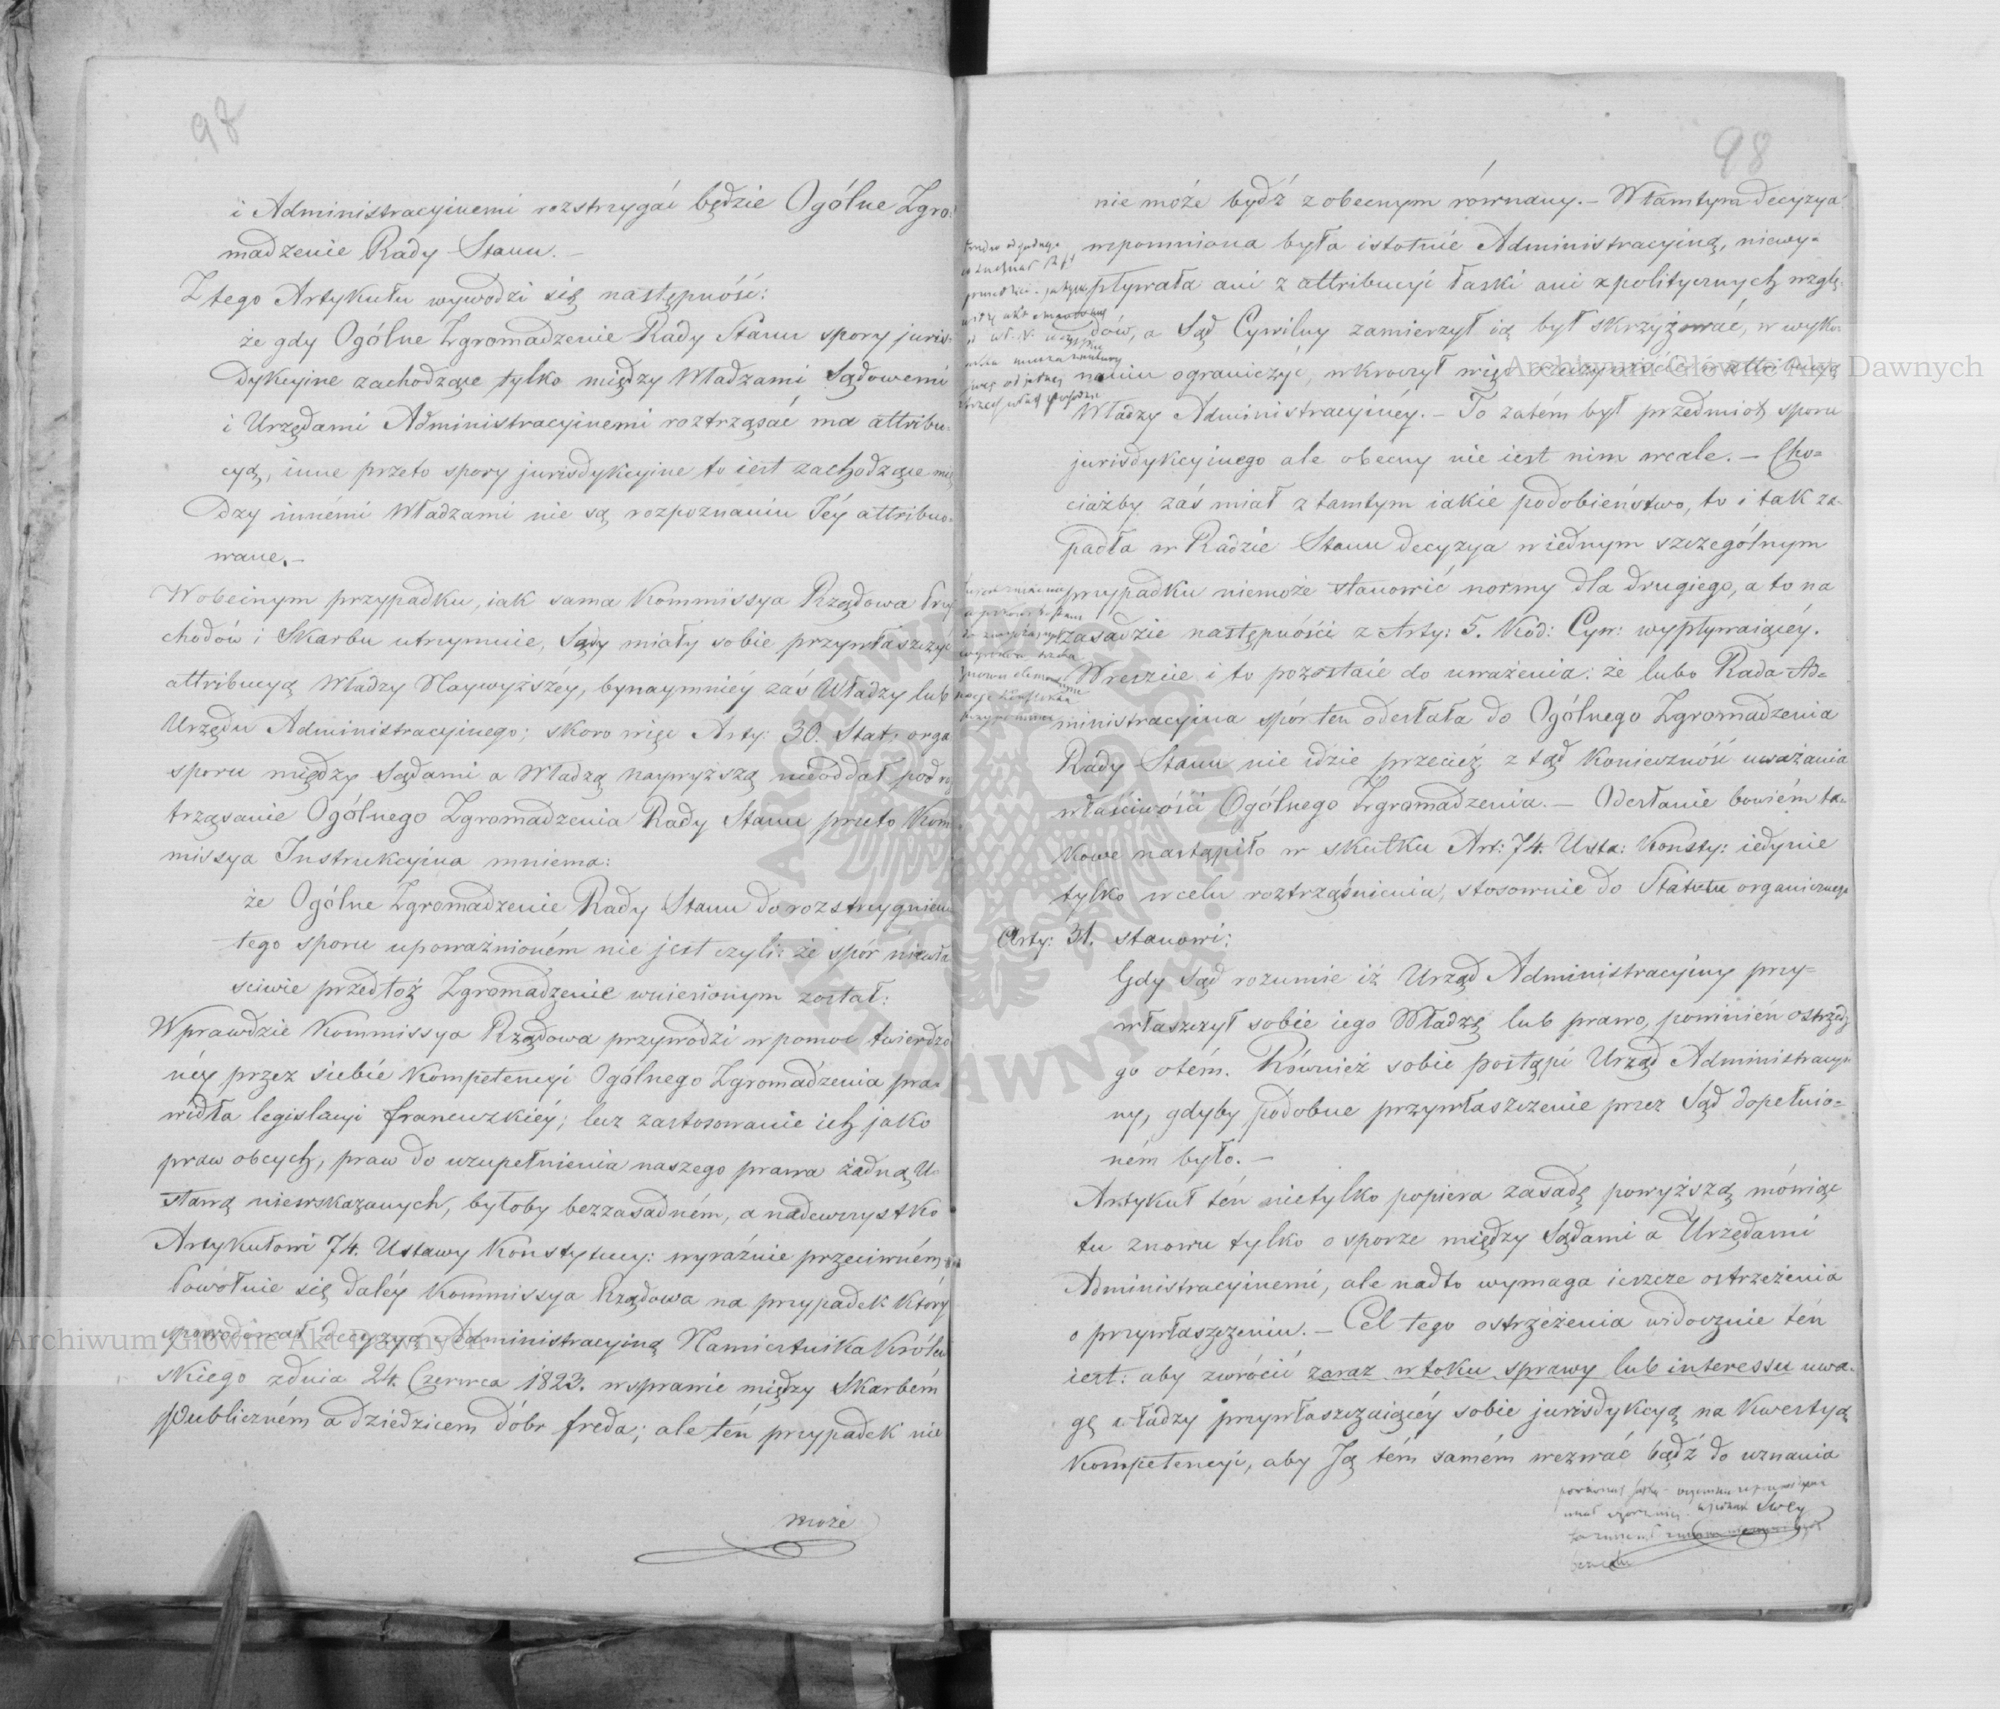 98
i Administracyinemi rozstrzygać będzie Ogólne Zgro-
madzenie Rady Stanu. —
Z tego Artykułu wywodzi się następność:
że gdy Ogólne Zgromadzenie Rady Stanu spory juris-
dykcyine zachodzące tylko między Władzami Sądowemi
i Urzędami Administracyinemi roztrząsać ma attribu-
cyą, inne przeto spory jurisdykcyine to iest zachodzące mię
dzy innémi Władzami nie są rozpoznaniu Jéy attribuo-
wane. —
W obecnym przypadku, iak sama Kommissya Rządowa Przy
chodów i Skarbu utrzymuie, Sądy miały sobie przywłaszczyć
attribucyą Władzy Naywyższéy, bynaymniéy zaś Władzy lub
Urzędu Administracyinego; skoro więc Arty: 30. Stat: orga
sporu między Sądami a Władzą naywyższą nieoddał pod roz
trząsanie Ogólnego Zgromadzenia Rady Stanu przeto Kom
missya Instrukcyina mniema:
że Ogólne Zgromadzenie Rady Stanu do rozstrzygnienia
tego sporu upoważnioném nie jest czyli: że spór niewła
sciwie przedtoż Zgromadzenie wniesionym został:
Wprawdzie Kommissya Rządowa przywodzi w pomoc twierdzo
néy przez siebie Kompetencyi Ogólnego Zgromadzenia pra-
widła legislacyi francuzkiéy; lecz zastosowanie ich jako
praw obcych, praw do uzupełnienia naszego prawa żadną U-
stawą niewskazanych, byłoby bezzasadném, a nadewszystko
Artykułowi 74. Ustawy Konstytucy: wyraźnie przeciwném
Powołuie się daléy Kommissya Rządowa na przypadek który
spowodował decyzyą Administracyiną Namiestnika Królew
skiego z dnia 24. Czerwca 1823. w sprawie między Skarbem
Publiczném a dziedzicem dóbr Freda; ale tén przypadek nie
może
98
nie może bydź z obecnym równany. — W tamtym decyzya
wspomniona była istotnie Administracyiną, niewy-
pływała ani z attribucyi łaski ani z politycznych wzglę-
dów, a Sąd Cywilny zamierzył ią był skrzyżować, w wyko
naniu ograniczyć, wkroczył więc rzeczywiście w attribucyą
Władzy Administracyinéy. — To zatém był przedmiot sporu
jurisdykcyinego ale obecny nie iest nim wcale. — Cho-
ciażby zaś miał z tamtym iakie podobieństwo, to i tak za-
padła w Radzie Stanu decyzya w iednym szczególnym
przypadku niemoże stanowić normy dla drugiego, a to na
zasadzie następności z Arty: 5. Kod: Cyw: wypływaiącéy.
Wreszcie i to pozostaie do uważenia: że lubo Rada Ad-
ministracyina spór ten odesłała do Ogólnego Zgromadzenia
Rady Stanu nie idzie przecież z tąd konieczność uważania
właściwości Ogólnego Zgromadzenia. — Odesłanie bowiém ta-
kowe nastąpiło w skutku Art: 74. Usta: Konsty: iedynie
tylko w celu roztrząśnienia, stosownie do Statutu organicznego
Arty: 31. stanowi:
Gdy Sąd rozumie iż Urząd Administracyiny przy-
właszczył sobie iego Władzę lub prawo, powinién ostrzedz
go otém. Również sobie postąpi Urząd Administracyi-
ny, gdyby podobne przywłaszczenie przez Sąd dopełnio-
ném było. —
Artykuł tén nietylko popiera zasadę powyższą mówiąc
tu znowu tylko o sporze między Sądami a Urzędami
Administracyinemi, ale nadto wymaga ieszcze ostrzeżenia
o przywłaszczeniu. — Cel tego ostrzeżenia widocznie tén
iest: aby zwrócić zaraz w toku sprawy lub interessu uwa-
gę władzy przywłaszczaiącéy sobie jurisdykcyą na kwestyą
Kompetencyi, aby Ją tém samém wezwać bądź do uznania
Archiwum Główne Akt Dawnych
Archiwum Główne Akt Dawnych
ARCHIWUM GŁÓWNE AKT DAWNYCH